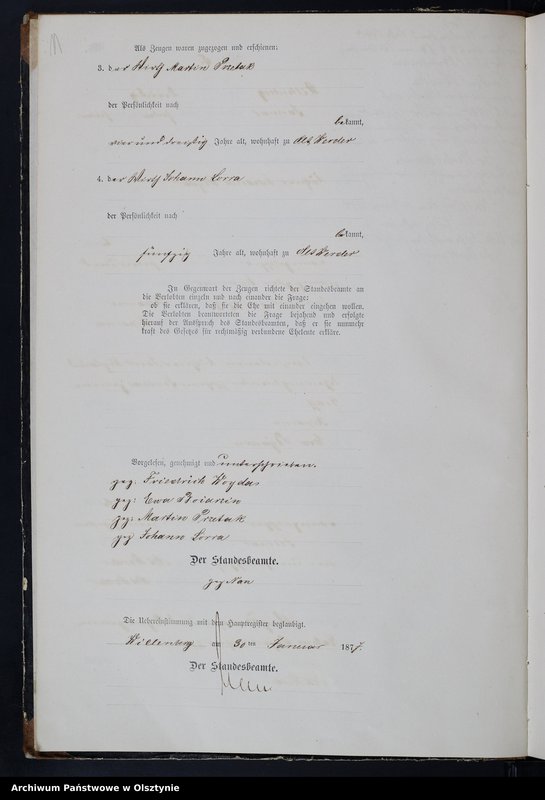 Als Zeugen waren zugezogen und erschienen:
3. der Wirth Martin Przetak
der Persönlichkeit nach
bekannt,
vier und dreißig Jahre alt, wohnhaft zu Alt Werder
4. der Wirth Johann Lorra
der Persönlichkeit nach
bekannt,
fünfzig Jahre alt, wohnhaft zu Alt Werder
In Gegenwart der Zeugen richtete der Standesbeamte an
die Verlobten einzeln und nach einander die Frage:
ob sie erklären, daß sie die Ehe mit einander eingehen wollen.
Die Verlobten beantworteten die Frage bejahend und erfolgte
hierauf der Ausspruch des Standesbeamten, daß er sie nunmehr
kraft des Gesetzes für rechtmäßig verbundene Eheleute erkläre.
Vorgelesen, genehmigt und unterschrieben.
gez: Friedrich Woydas
gez: Ewa
gez: Martin Przetak
gez Johann Lorra
Der Standesbeamte.
gez
Die Uebereinstimmung mit dem Hauptregister beglaubigt.
Willenberg am 30ten Januar 1877.
Der Standesbeamte.
Archiwum Państwowe w Olsztynie